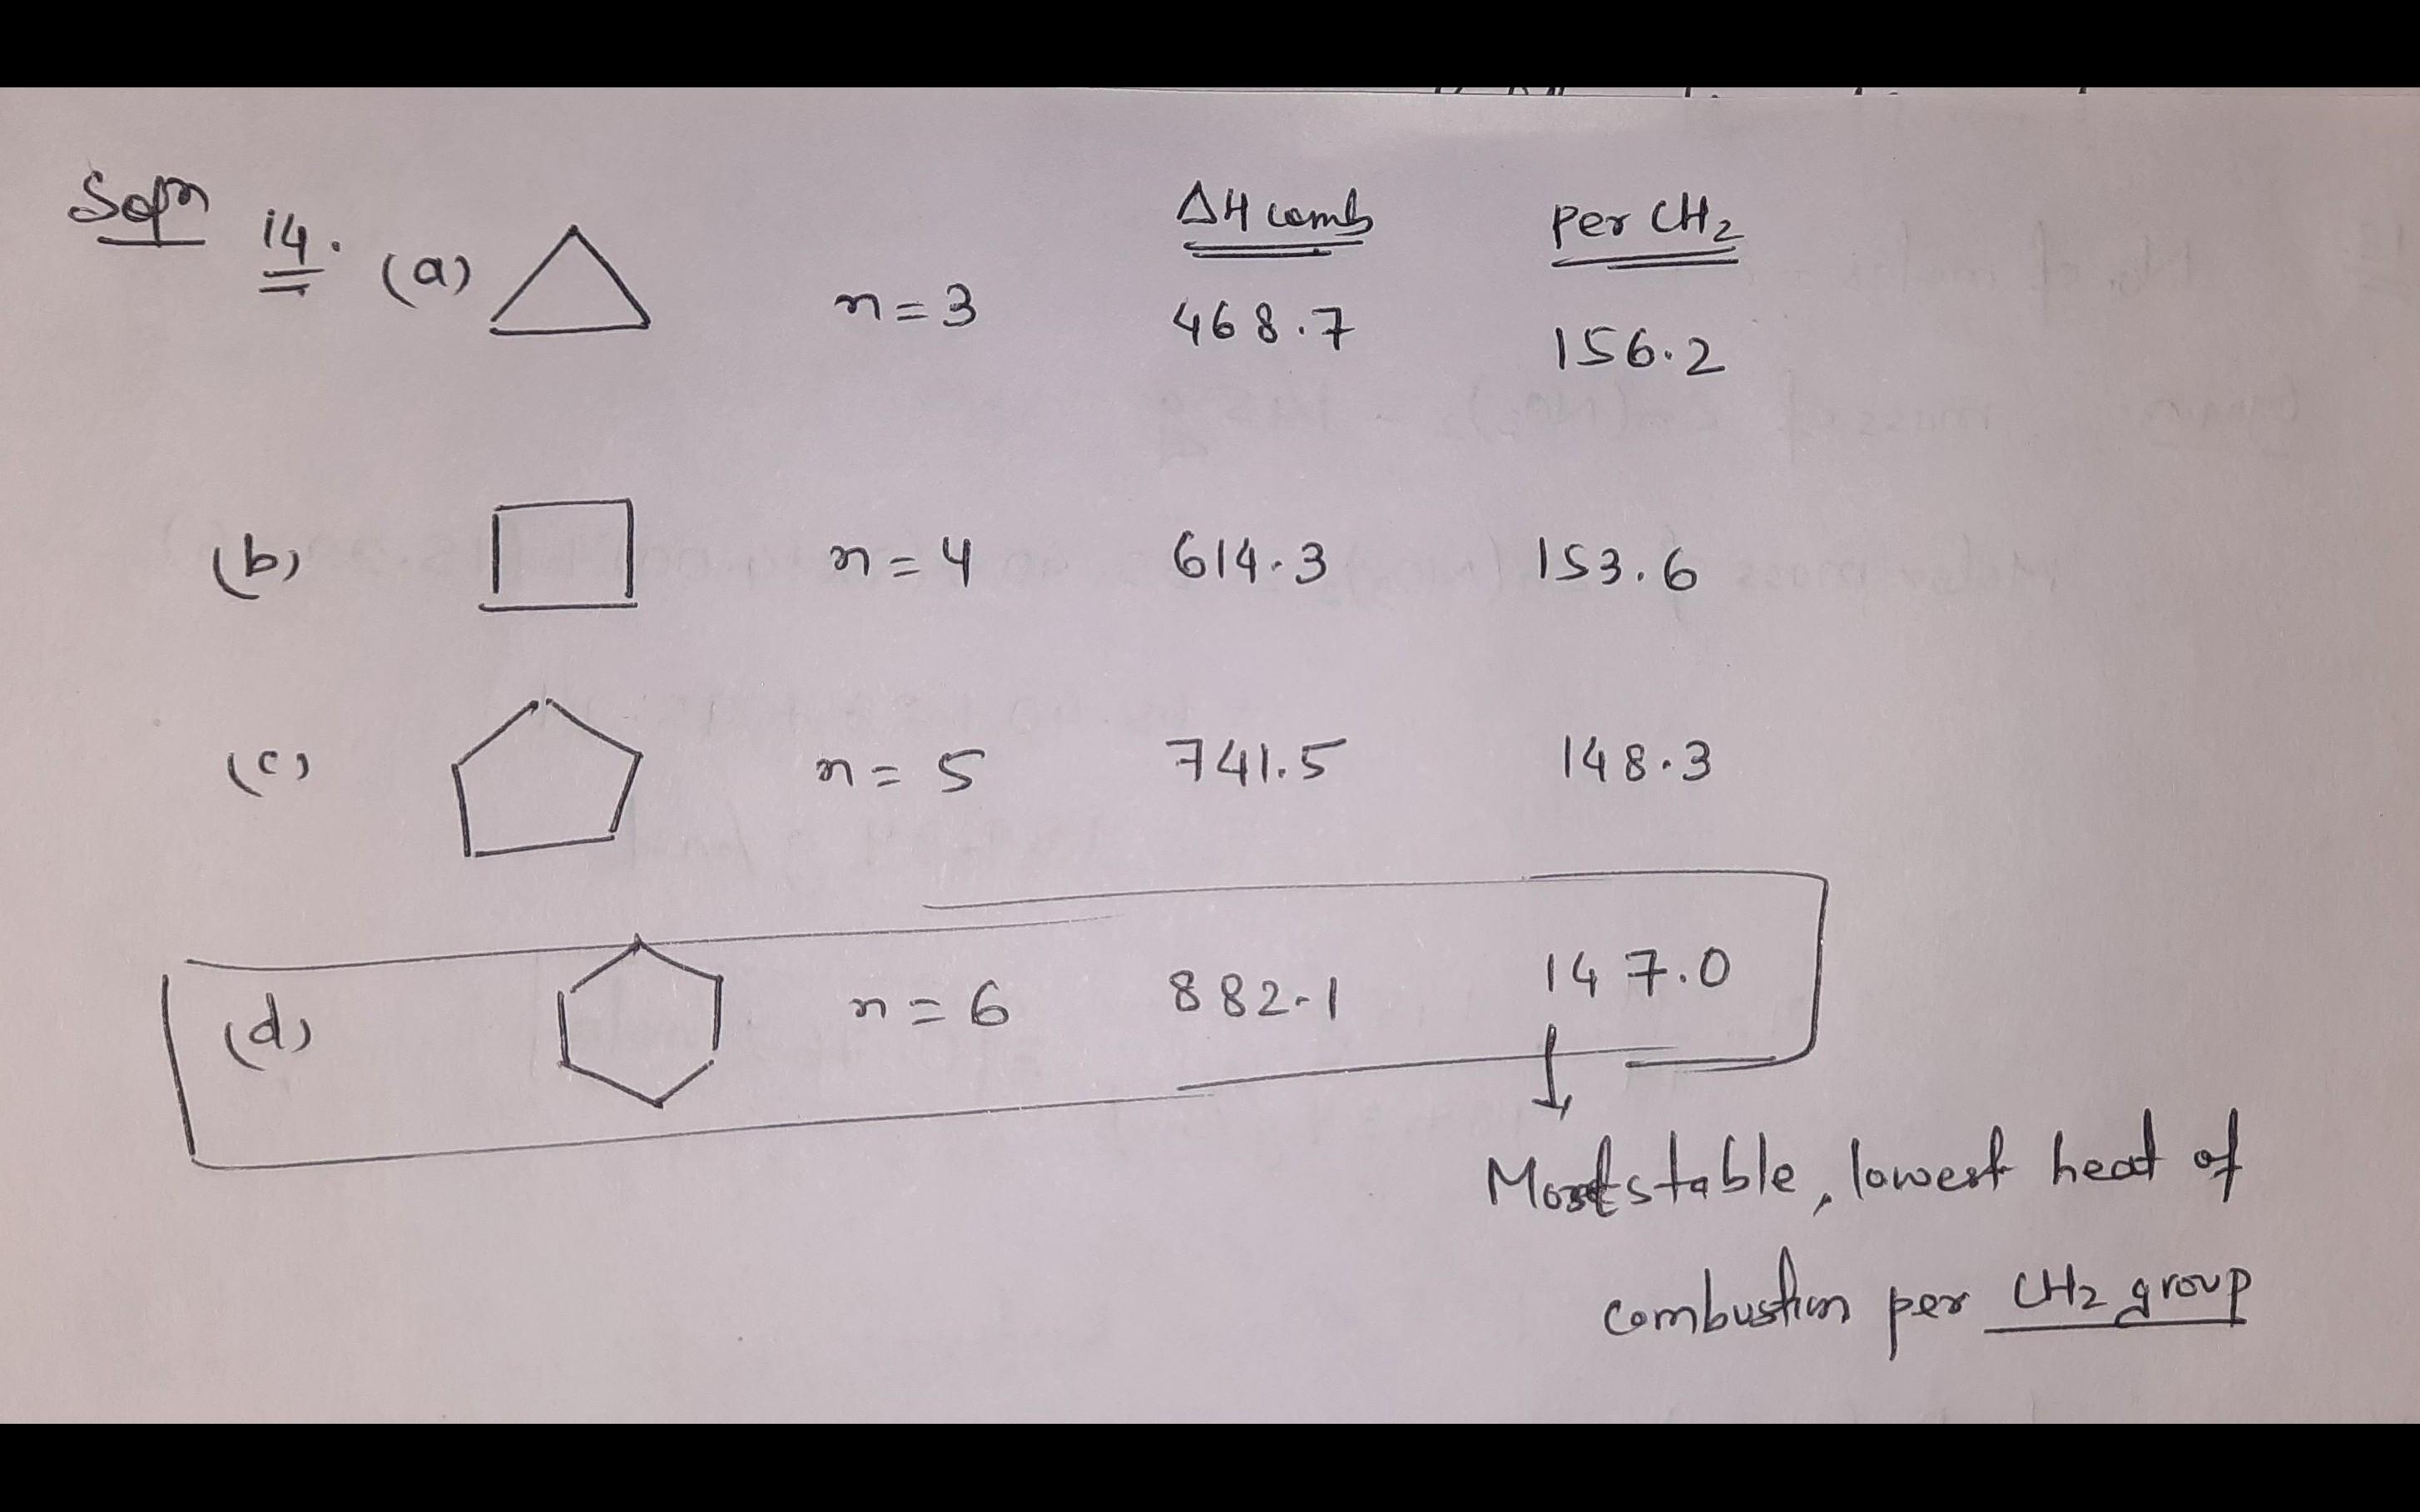 Soln 14. (a) n = 3 ΔH comb 468.7 per CH2 156.2
(b) n = 4 614.3 153.6
(c) n = 5 741.5 148.3
(d) n = 6 882.1 147.0
Most stable, lowest heat of
combustion per CH2 group